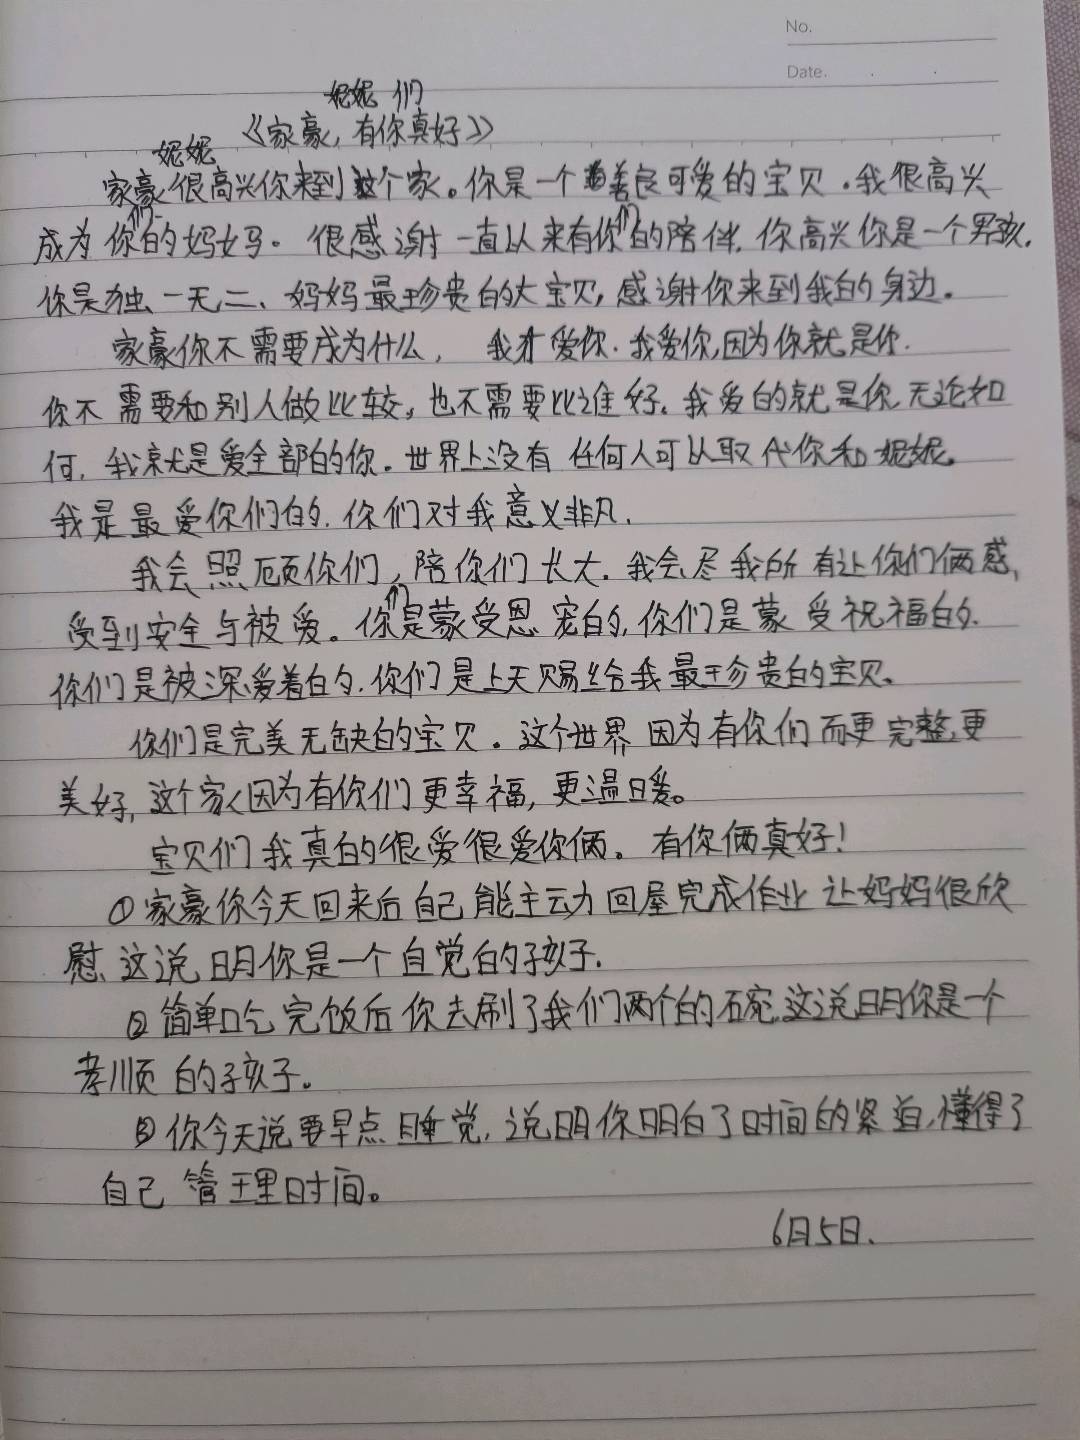 No.
Date.
妮妮 们
《家豪,有你真好》
妮妮
家豪很高兴你来到这个家。你是一个善良可爱的宝贝.我很高兴
成为你们的妈妈.很感谢一直以来有你们的陪伴.你高兴你是一个男孩.
你是独一无二、妈妈最珍贵的大宝贝,感谢你来到我的身边.
家豪你不需要成为什么,我才爱你.我爱你,因为你就是你.
你不需要和别人做比较,也不需要比谁好.我爱的就是你,无论如
何,我就是爱全部的你.世界上没有任何人可以取代你和妮妮。
我是最爱你们的.你们对我意义非凡.
我会照顾你们,陪你们长大.我会尽我所有让你们俩感
受到安全与被爱。你们是蒙受恩宠的,你们是蒙受祝福的.
你们是被深爱着的.你们是上天赐给我最珍贵的宝贝。
你们是完美无缺的宝贝.这个世界因为有你们而更完整,更
美好,这个家因为有你们更幸福,更温暖。
宝贝们我真的很爱很爱你俩。有你俩真好!
①家豪你今天回来后自己能主动回屋完成作业让妈妈很欣
慰,这说明你是一个自觉的孩子.
②简单吃完饭后你去刷了我们两个的碗,这说明你是一个
孝顺的孩子。
③你今天说要早点睡觉,说明你明白了时间的紧迫,懂得了
自己管理时间。
6月5日.